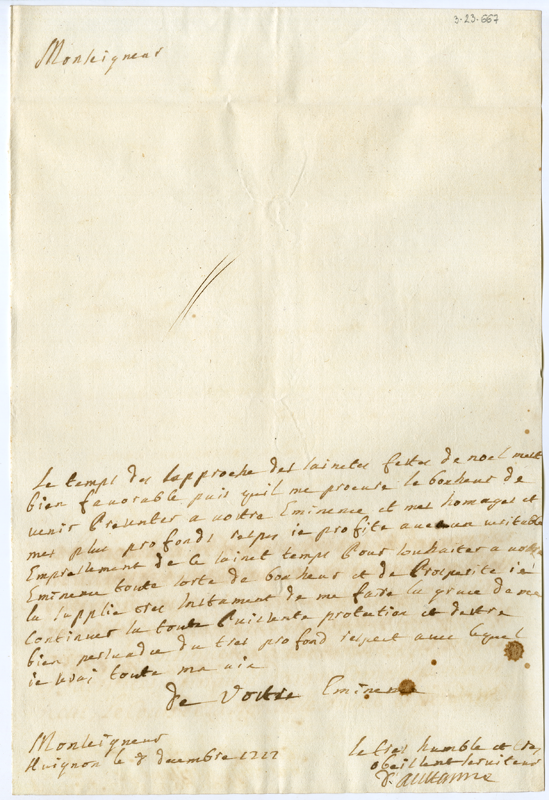 3-23-667
Monseigneur
Le temps des lapproche des sainctes festes de noel mest
bien favorable puis quil me procure le bonheur de
venir Presenter a vostre Eminence et mes homages et
mes plus profonds respes ie profite avec un veritable
Empressement de ce sainct temps Pour souhaiter a vostre
Eminence toute sorte de bonheur et de Prosperité ie
la supplie tres Instament de me faire la grace de me
Continuer la toute Puissante protection et destre
bien persuadée du tres profond respect avec lequel
ie serai toute ma vie
De Vostre Eminence
Monseigneur
Avignon le decembre
le tres humble et tres
obeissant serviteur